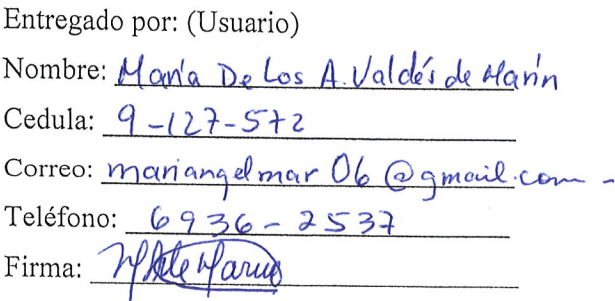 Entregado por: (Usuario)
Nombre: María De Los A. Valdés de Marín
Cedula: 9-127-572
Correo: mariangelmar06@gmail.com -
Teléfono: 6936-2537
Firma: